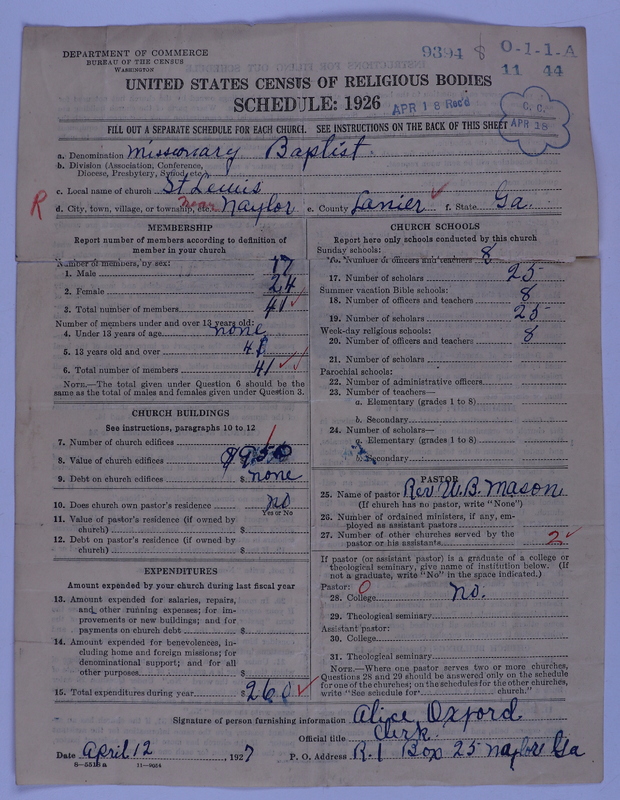 DEPARTMENT OF COMMERCE
BUREAU OF THE CENSUS
WASHINGTON
9394 8 0-1-1-A
11 44
UNITED STATES CENSUS OF RELIGIOUS BODIES
SCHEDULE: 1926
APR 18 Rec'd
C. C.
APR 18
FILL OUT A SEPARATE SCHEDULE FOR EACH CHURCH. SEE INSTRUCTIONS ON THE BACK OF THIS SHEET
a. Denomination Missionary Baptist.
b. Division (Association, Conference,
Diocese, Presbytery, Synod, etc.)
c. Local name of church St Lewis
R d. City, town, village, or township, etc. near Naylor e. County Lanier f. State Ga.
MEMBERSHIP
Report number of members according to definition of
member in your church
Number of members, by sex:
1. Male 17
2. Female 24
3. Total number of members 41
Number of members under and over 13 years old:
4. Under 13 years of age none
5. 13 years old and over 41
6. Total number of members 41
NOTE.—The total given under Question 6 should be the
same as the total of males and females given under Question 3.
CHURCH BUILDINGS
See instructions, paragraphs 10 to 12
7. Number of church edifices 1
8. Value of church edifices $950
9. Debt on church edifices $ none
10. Does church own pastor's residence no
Yes or No
11. Value of pastor's residence (if owned by
church) $
12. Debt on pastor's residence (if owned by
church) $
EXPENDITURES
Amount expended by your church during last fiscal year
13. Amount expended for salaries, repairs,
and other running expenses; for im-
provements or new buildings; and for
payments on church debt $
14. Amount expended for benevolences, in-
cluding home and foreign missions; for
denominational support; and for all
other purposes $
15. Total expenditures during year $260
CHURCH SCHOOLS
Report here only schools conducted by this church
Sunday schools:
16. Number of officers and teachers 8
17. Number of scholars 25
Summer vacation Bible schools:
18. Number of officers and teachers 8
19. Number of scholars 25
Week-day religious schools:
20. Number of officers and teachers 8
21. Number of scholars
Parochial schools:
22. Number of administrative officers
23. Number of teachers—
a. Elementary (grades 1 to 8)
b. Secondary
24. Number of scholars—
a. Elementary (grades 1 to 8)
b. Secondary
PASTOR
25. Name of pastor Rev W. B. Mason
(If church has no pastor, write "None")
26. Number of ordained ministers, if any, em-
ployed as assistant pastors
27. Number of other churches served by the
pastor or his assistants 2
If pastor (or assistant pastor) is a graduate of a college or
theological seminary, give name of institution below. (If
not a graduate, write "No" in the space indicated.)
Pastor: 0
28. College No.
29. Theological seminary
Assistant pastor:
30. College
31. Theological seminary
NOTE.—Where one pastor serves two or more churches,
Questions 28 and 29 should be answered only on the schedule
for one of the churches; on the schedules for the other churches,
write "See schedule for church."
Signature of person furnishing information Alice Oxford
Official title Clerk.
Date April 12 1927 P. O. Address R.1 Box 25 Naylor Ga
8—5518 a 11—9054